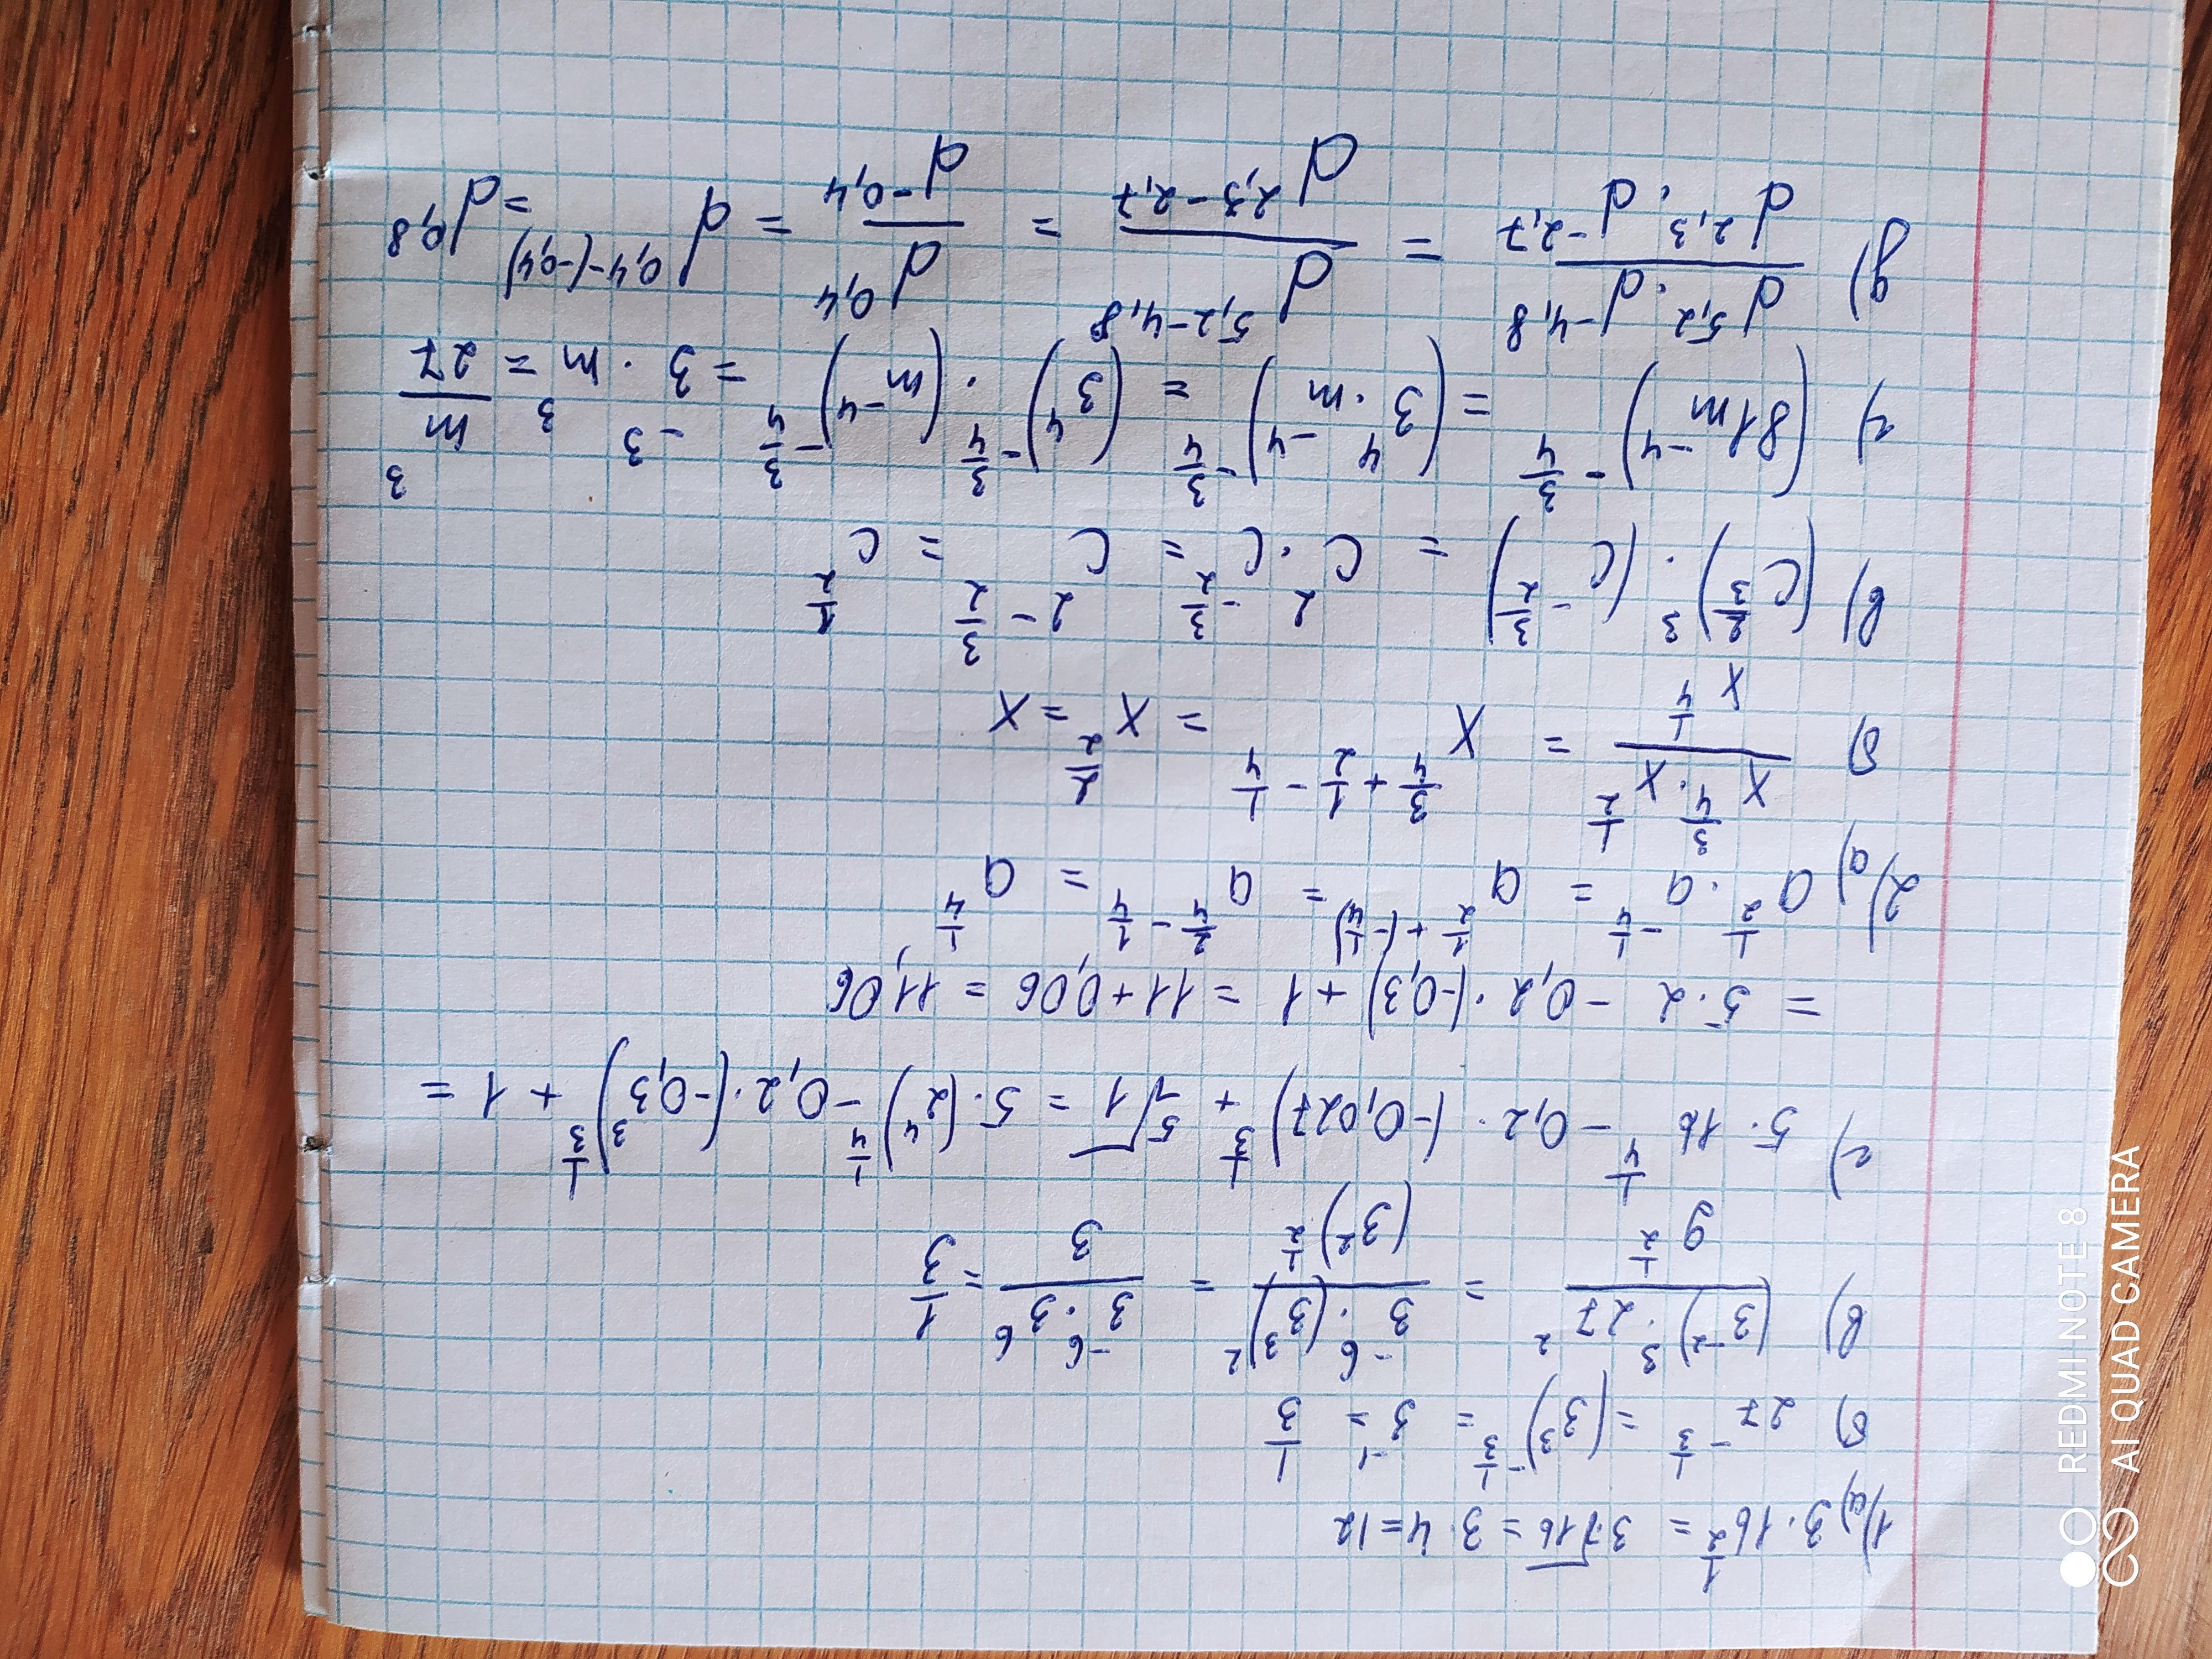 1)а) 3·16^{1/2} = 3·√16 = 3·4=12
б) 27^{-1/3} = (3^3)^{-1/3} = 3^{-1} = 1/3
в) ((3^{-2})^3·27^2)/(9^{1/2}) = (3^{-6}·(3^3)^2)/((3^2)^{1/2}) = (3^{-6}·3^6)/3 = 1/3
г) 5·16^{1/4} - 0,2·(-0,027)^{1/3} + ⁵√1 = 5·(2^4)^{1/4} - 0,2·(-0,3^3)^{1/3} + 1 =
= 5·2 - 0,2·(-0,3) + 1 = 11+0,06 = 11,06
2)а) a^{1/2}·a^{-1/4} = a^{1/2+(-1/4)} = a^{2/4-1/4} = a^{1/4}
б) (x^{3/4}·x^{1/2})/(x^{1/4}) = x^{3/4+1/2-1/4} = x^{2/2} = x
в) (c^{2/3})^3·(c^{-3/2}) = c^2·c^{-3/2} = c^{2-3/2} = c^{1/2}
г) (81m^{-4})^{-3/4} = (3^4·m^{-4})^{-3/4} = (3^4)^{-3/4}·(m^{-4})^{-3/4} = 3^{-3}·m^3 = m^3/27
д) (d^{5,2}·d^{-4,8})/(d^{2,3}·d^{-2,7}) = d^{5,2-4,8}/d^{2,3-2,7} = d^{0,4}/d^{-0,4} = d^{0,4-(-0,4)} = d^{0,8}
REDMI NOTE 8
AI QUAD CAMERA